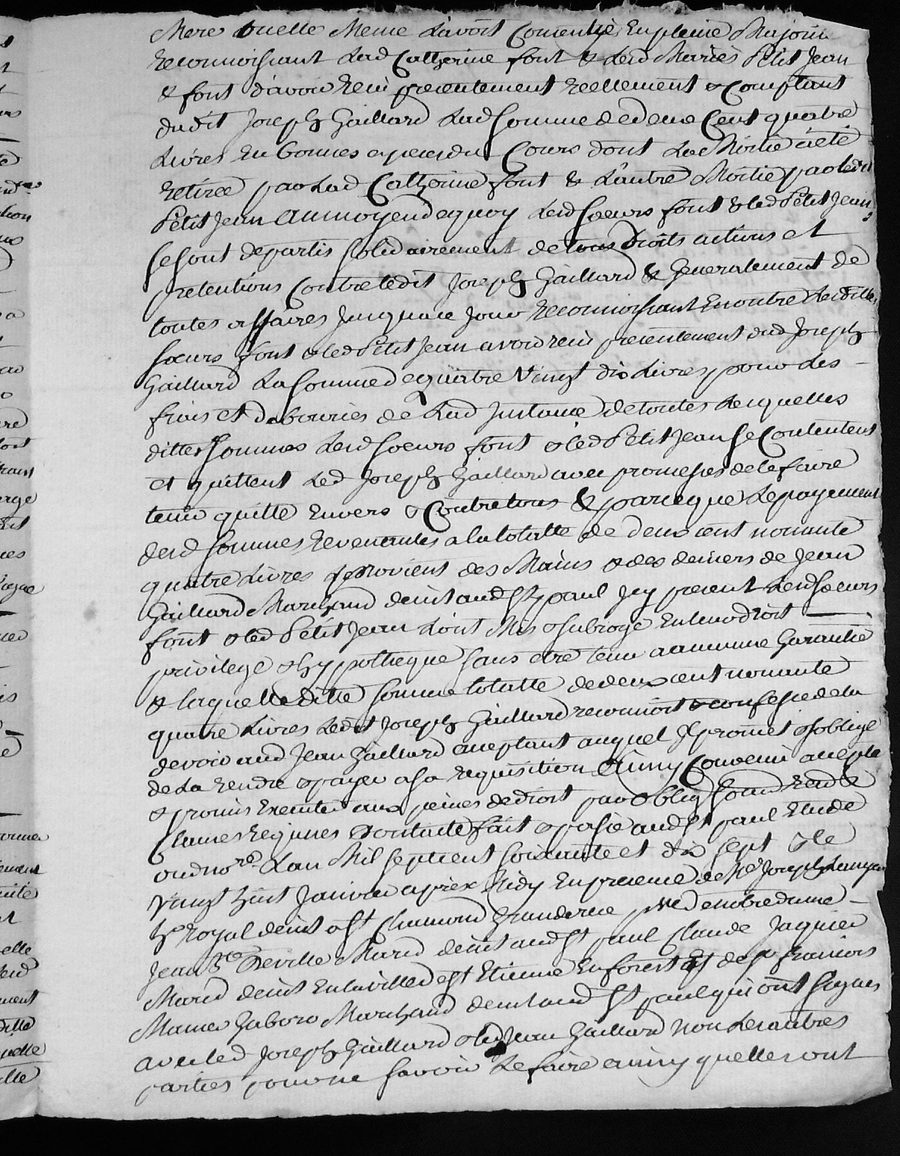 Mere quelle Meme l'avoit Consentie En pleine Majorite
reconnoissant Lad Catherine font & Led Maries Petit Jean
& font d'avoir Reçu presentement reellement & Comptant
dudit Joseph Gaillard Lad Somme de deux Cent quatre
Livres En bonnes especes du Cours dont La Moitié a été
retirée par Lad Catherine font & L'autre Moitié par led
Petit Jean Au moyen de quoy Lesd Soeurs font & led Petit Jean
se sont departis solidairement de tous Droits actions et
pretentions Contre ledit Joseph Gaillard & Generalement de
toutes affaires Jusqu'a ce Jour reconnoissant En outre Lesdittes
soeurs font & led Petit Jean avoir reçu presentement dud Joseph
Gaillard La somme de quatre Vingt dix Livres pour les
frais et debourses de Lad Instance de toutes Lesquelles
dittes sommes Lesd soeurs font & led Petit Jean se Contentent
et quittent Led Joseph Gaillard avec promesses de le faire
tenir quitte Envers & Contre tous & parceque Le payement
desd sommes revenantes a la totalle de deux cent nonante
quatre Livres provient des Mains & des deniers de Jean
Gaillard Marchand demt aud St paul Icy present Lesd soeurs
font & led Petit Jean L'ont Mis & subrogé En leur droit
privilege & hyppotheque sans etre tenu a aucune Garantie
& laquelle ditte somme totalle de deux cent nonante
quatre Livres Ledit Joseph Gaillard reconnoit & confesse de la
devoir aud Jean Gaillard acceptant auquel Il promet & s'oblige
de La rendre & payer a sa requisition Ainsy Convenu accepté
& promis Executer aux peines de droit par oblig soum renon
Clauses requises Dont acte fait & passé aud St paul Etude
dud nore. L'an Mil sept cent soixante et dix sept & le
Vingt huit Janvier apres Midy En presence de Me Joseph
hr Royal demt a St Chamond
Jean Bte Deville Mard demt aud St paul Claude Jaquier
Mard demt En la ville de St Etienne En forest Et de Sr francois
Gabory Marchand demt aud St paul qui ont signé
avec led Joseph Gaillard & led Jean Gaillard non Les autres
parties pour ne savoir Le faire ainsy quelles ont